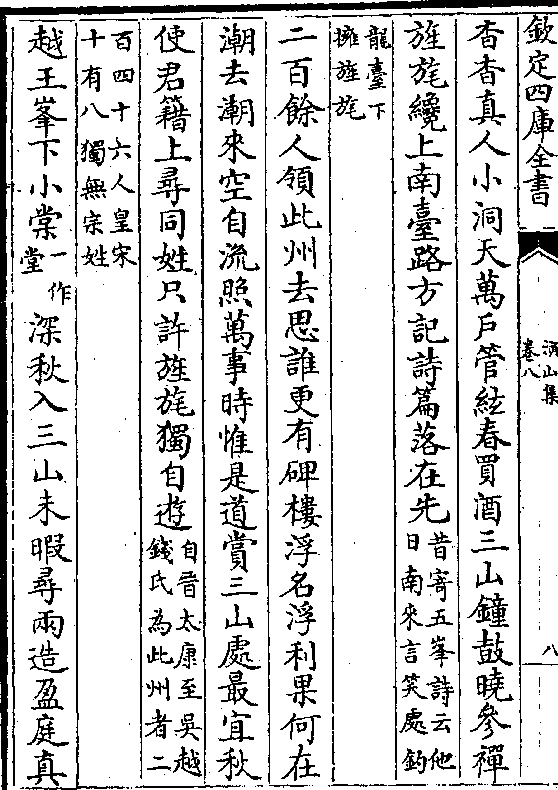 欽定四庫全書
淵山集
卷八
八
杳杳真人小洞天萬戶管絃春買酒三山鐘鼓曉參禪
旌旄纔上南臺路方記詩篇落在先
昔寄五峯詩云他
日南來言笑處鈞
龍臺下
擁旌旄
二百餘人領此州去思誰更有碑樓浮名浮利果何在
潮去潮來空自流照萬事時惟是道賞三山處最宜秋
使君籍上尋同姓只許旌旄獨自遊
自晉太康至吳越
錢氏為此州者二
百四十六人皇宋
十有八獨無宗姓
越王峯下小棠
一作
堂
深秋入三山未暇尋兩造盈庭真